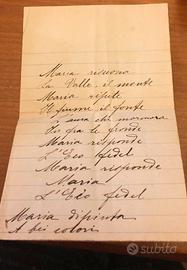 Maria risuona
La Valle, il monte
Maria ripete
Il fiume il fonte
L'aura che mormora
Tra le fronde
Maria risponde
L'Eco fedel
Maria risponde
Maria
L'Eco fedel
Maria dipinta
A bei colori
subito